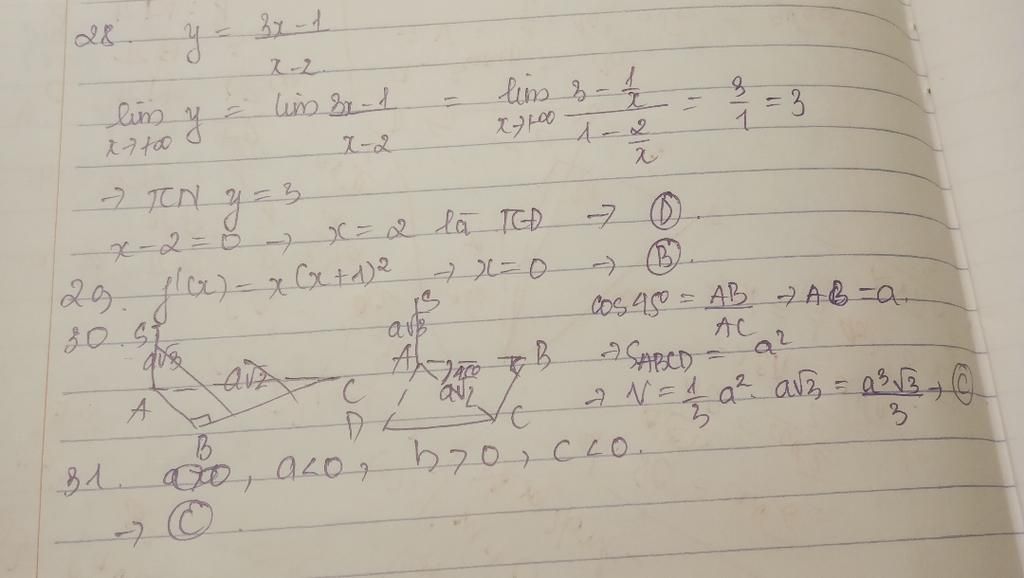 28. y = \frac{3x-1}{x-2}
\lim_{x→+∞} y = \lim \frac{3x-1}{x-2} = \lim_{x→+∞} \frac{3-\frac{1}{x}}{1-\frac{2}{x}} = \frac{3}{1} = 3
→ TCN y = 3
x-2=0 → x = 2 là TCĐ → Ⓓ.
29. f'(x) = x(x+1)² → x=0 → Ⓑ.
30. S a√3 A a√2 B C
S a√3 A 45° a√2 B C D
cos 45° = \frac{AB}{AC} → AB = a.
→ S_{ABCD} = a²
→ V = \frac{1}{3} a². a√3 = \frac{a³√3}{3} → Ⓒ
31. a<0, b>0, c<0.
→ Ⓒ.